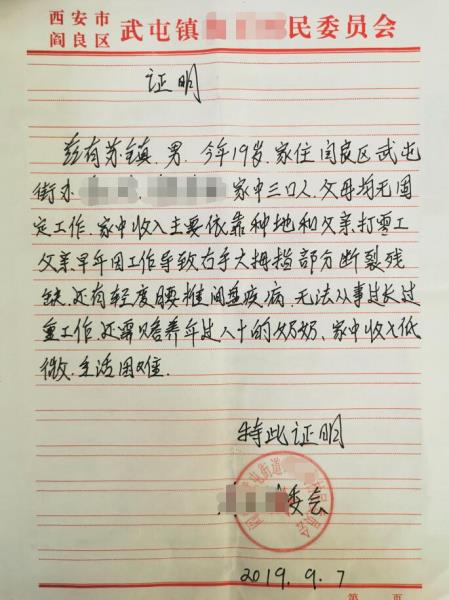 西安市
阎良区 武屯镇 民委员会
证明
兹有苏镇, 男, 今年19岁, 家住闫良区武屯
街办 , 家中三口人, 父母均无固
定工作, 家中收入主要依靠种地和父亲打零工
父亲早年因工作导致右手大拇指部分断裂残
缺, 还有轻度腰椎间盘疾病, 无法从事过长过
重工作, 还需赡养年过八十的奶奶, 家中收入低
微, 生活困难.
特此证明
屯街道
委会
2019. 9. 7
第 页